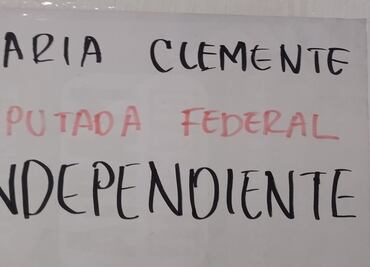 ARIA CLEMENTE
PUTADA FEDERAL
NDEPENDIENTE